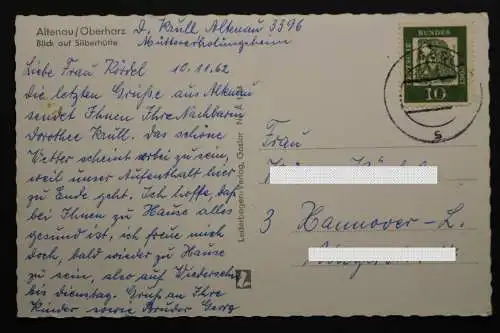 Altenau/Oberharz
Blick auf Silberhütte
D. Krull Altenau 3396
Müttererholungsheim
Liebe Frau Rödel 10.11.62
Die letzten Grüße aus Altenau
sendet Ihnen Ihre Nachbarin
Dorothee Krüll. Das schöne
Wetter scheint vorbei zu sein,
weil unser Aufenthalt hier
zu Ende geht. Ich hoffe, daß
bei Ihnen zu Hause alles
gesund ist, ich freue mich
doch, bald wieder zu Hause
zu sein, also auf Wiedersehn
bis Dienstag. Gruß an Ihre
Kinder sowie Bruder Georg
Lederbogen-Verlag, Goslar
DEUTSCHE BUNDESPOST
10
Frau
3 Hannover-L.